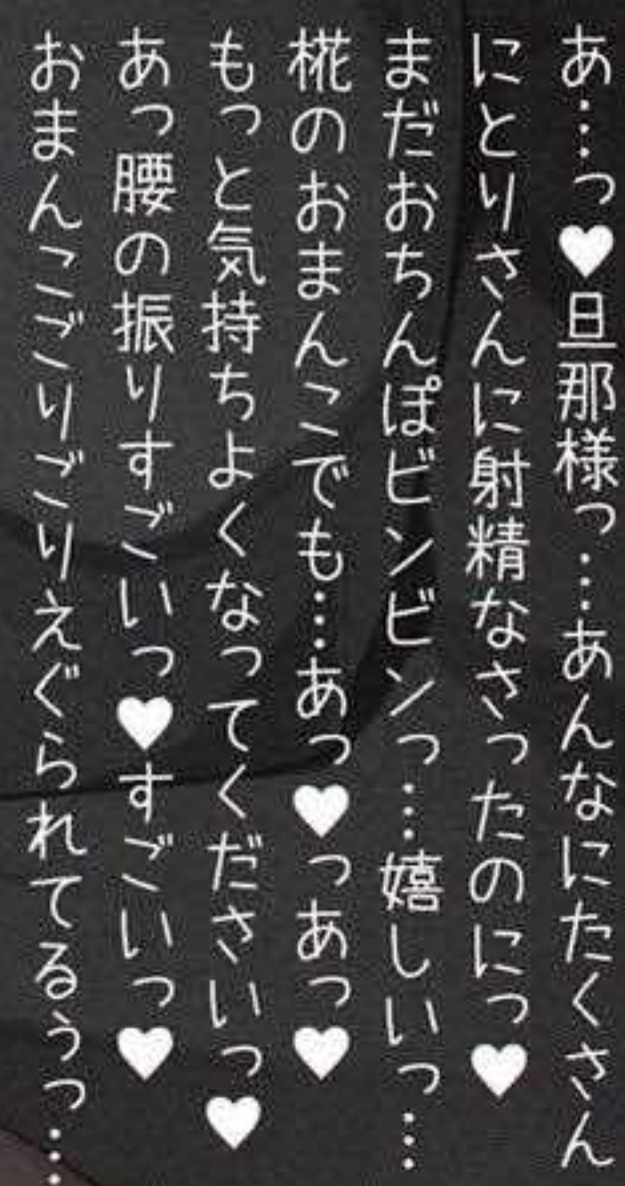 あ…っ♥旦那様っ…あんなにたくさん
にとりさんに射精なさったのにっ♥
まだおちんぽビンビンっ…嬉しいっ…
椛のおまんこでも…あっ♥っあっ♥
もっと気持ちよくなってくださいっ♥
あっ腰の振りすごいっ♥すごいっ♥
おまんこごりごりえぐられてるぅっ…